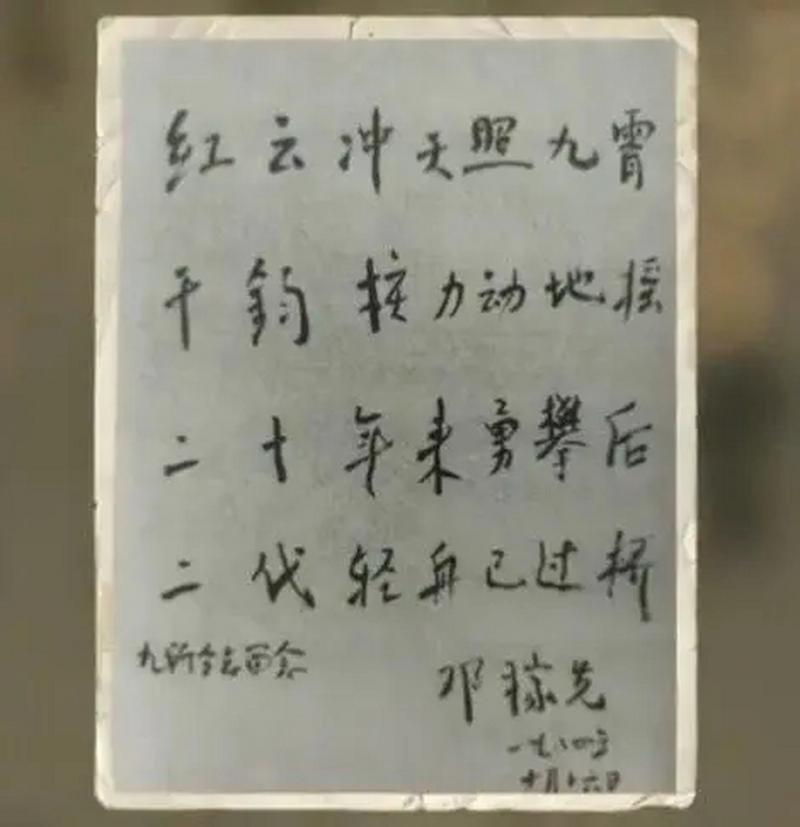 红云冲天照九霄
千钧核力动地摇
二十年来勇攀后
二代轻舟已过桥
九所全志留念
邓稼先
一九八四年
十月十六日